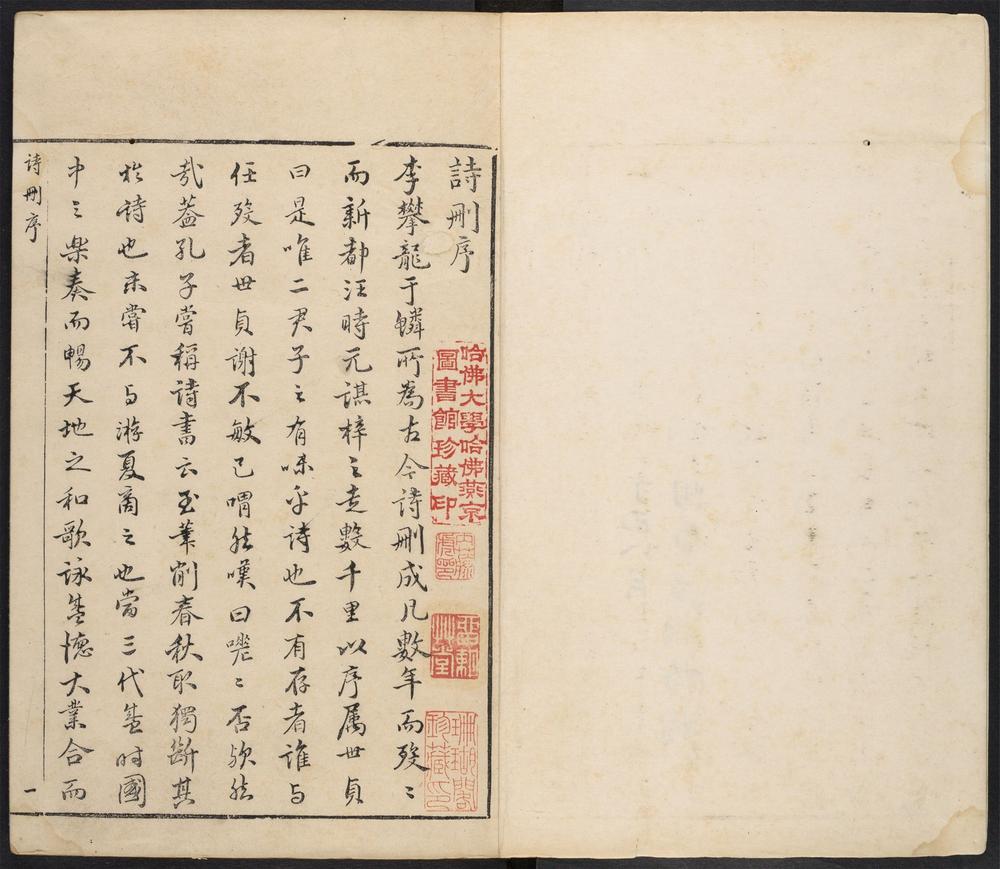 詩刪序
李攀龍于鱗所爲古今詩刪成凡數年而歿〻
而新都汪時元謀梓之走數千里以序属世貞
曰是唯二君子之有味乎詩也不有存者誰与
任歿者世貞謝不敏已喟然嘆曰嗟〻否欤然
哉蓋孔子嘗稱詩書云至筆削春秋取獨斷其
於詩也未嘗不与游夏商之也當三代盛時國
中之樂奏而暢天地之和歌詠盛德大業合而
詩刪序
一
哈佛大學哈佛燕京
圖書館珍藏印
珊瑚閣
珍藏印